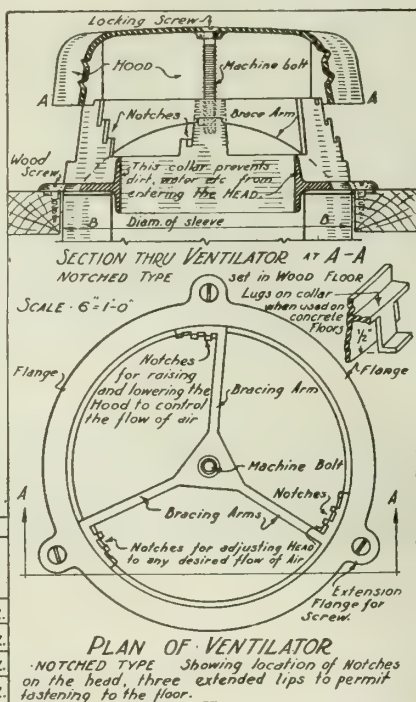 Locking Screw
HOOD
Machine bolt
A
A
Notches
Brace Arm
Wood
Screw
This collar prevents
dirt, water etc from
entering the HEAD.
B
B
Diam. of sleeve
SECTION THRU VENTILATOR AT A-A
NOTCHED TYPE
set in WOOD FLOOR
SCALE - 6"=1'-0"
Lugs on collar
when used on
concrete
Floors
1/2"
Flange
Flange
Notches
for raising
and lowering the
Hood to control
the flow of air
Bracing
Arm
Machine Bolt
Notches
Bracing Arms
A
A
Notches for adjusting HEAD
to any desired flow of Air
Extension
Flange for
Screw.
PLAN OF VENTILATOR
NOTCHED TYPE Showing location of Notches
on the head, three extended lips to permit
fastening to the floor.